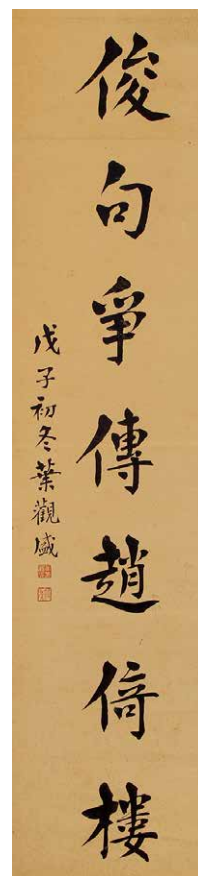 俊句爭傳趙倚樓
戊子初冬葉觀盛